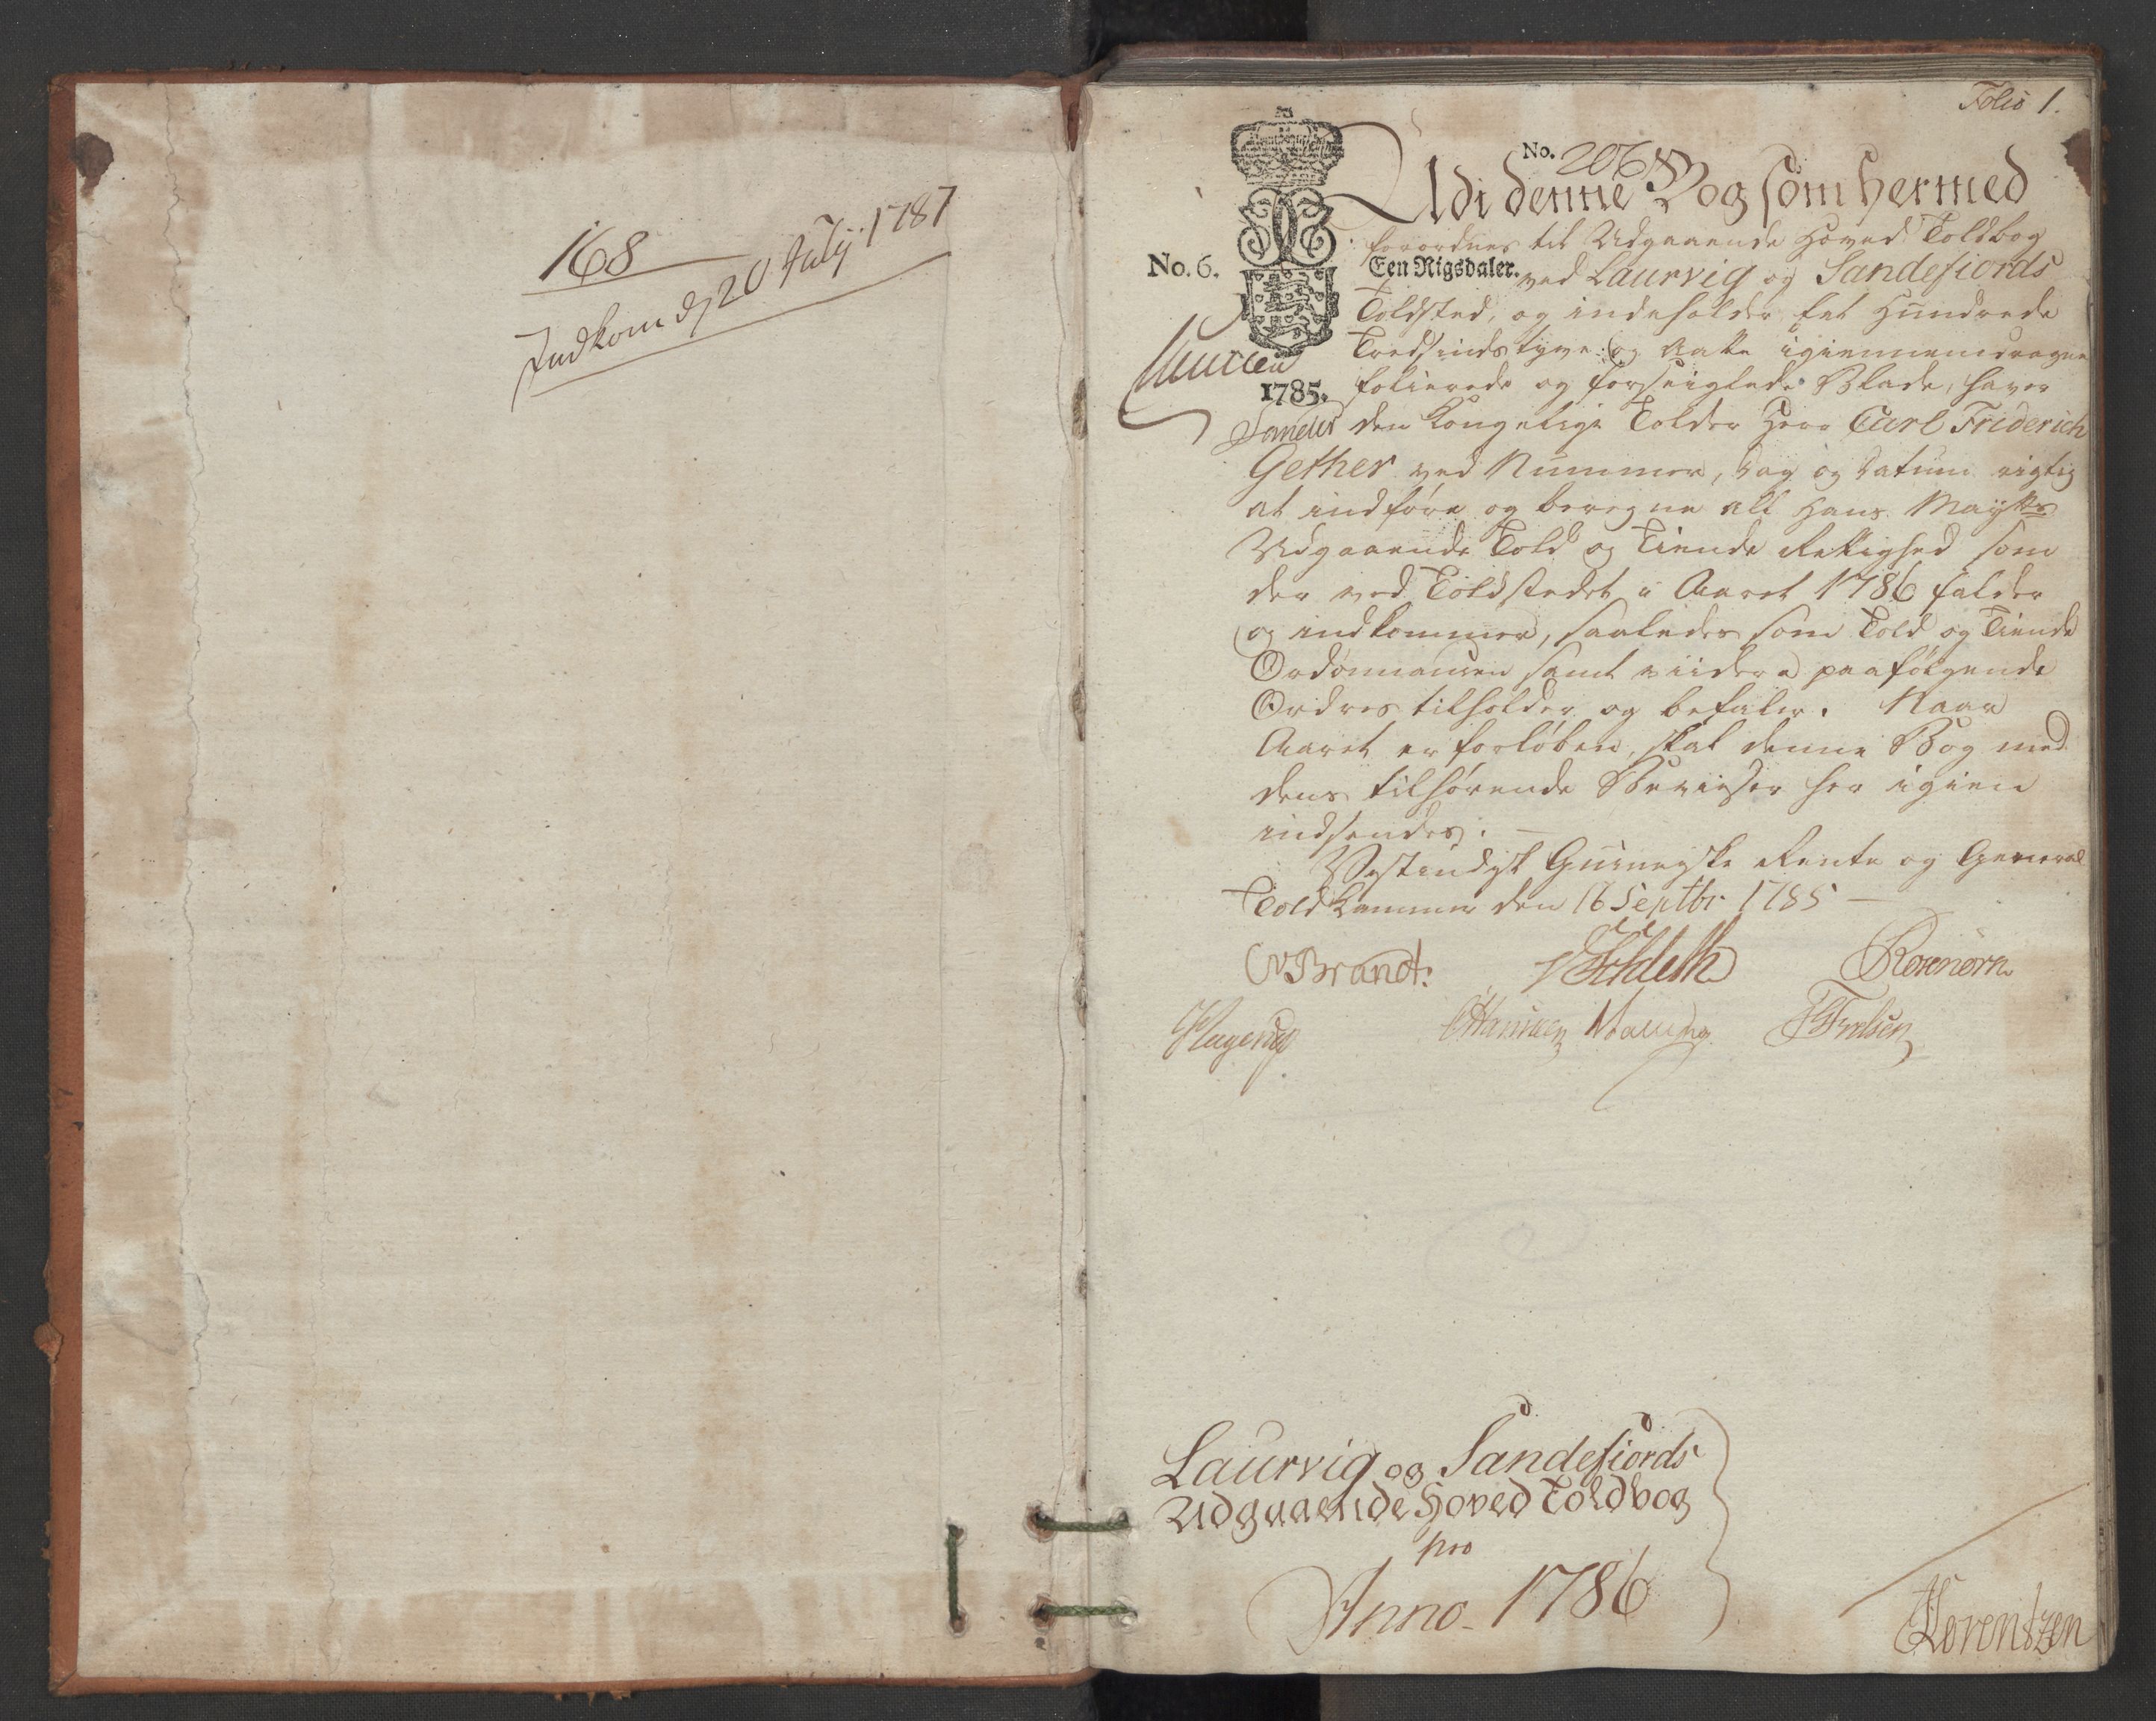 168
Indkom d. 20 July. 1787
Folio 1.
No. 206
Udi denne Bog som hermed
forordnes til Udgaaende Hoved Toldbog
No. 6.
Een Rigsdaler.
ved Laurvig og Sandefiords
Toldsted, og indeholder Eet Hundrede
Tredsindstyve og Aatte igiennemdragne
1785.
folierede og forseiglede Blade, haver
den Kongelige Tolder Herr Carl Friderich
Gether ved Nummer, Dag og Datum rigtig
at indføre og beregne alt Hans Mayts
Udgaaende Told og Tiende Rettighed som
der ved Toldstedet i Aaret 1786 falder
og indkommer, saaledes som Told og Tiende
Ordonnancen samt viidere paafølgende
Ordres tilholder og befaler. Naar
Aaret er forløben, skal denne Bog med
dens tilhørende Beviiser her igien
indsendes. —
Vestindisk Guineiske Rente og General
Told Kammer den 16 Septbr 1785 —
Brandt.
Rosenørn
Hagerup
Hansen Malling
Laurvig og Sandefiords
Udgaaende Hoved Toldbog
pro
Anno. 1786
Lorentzen